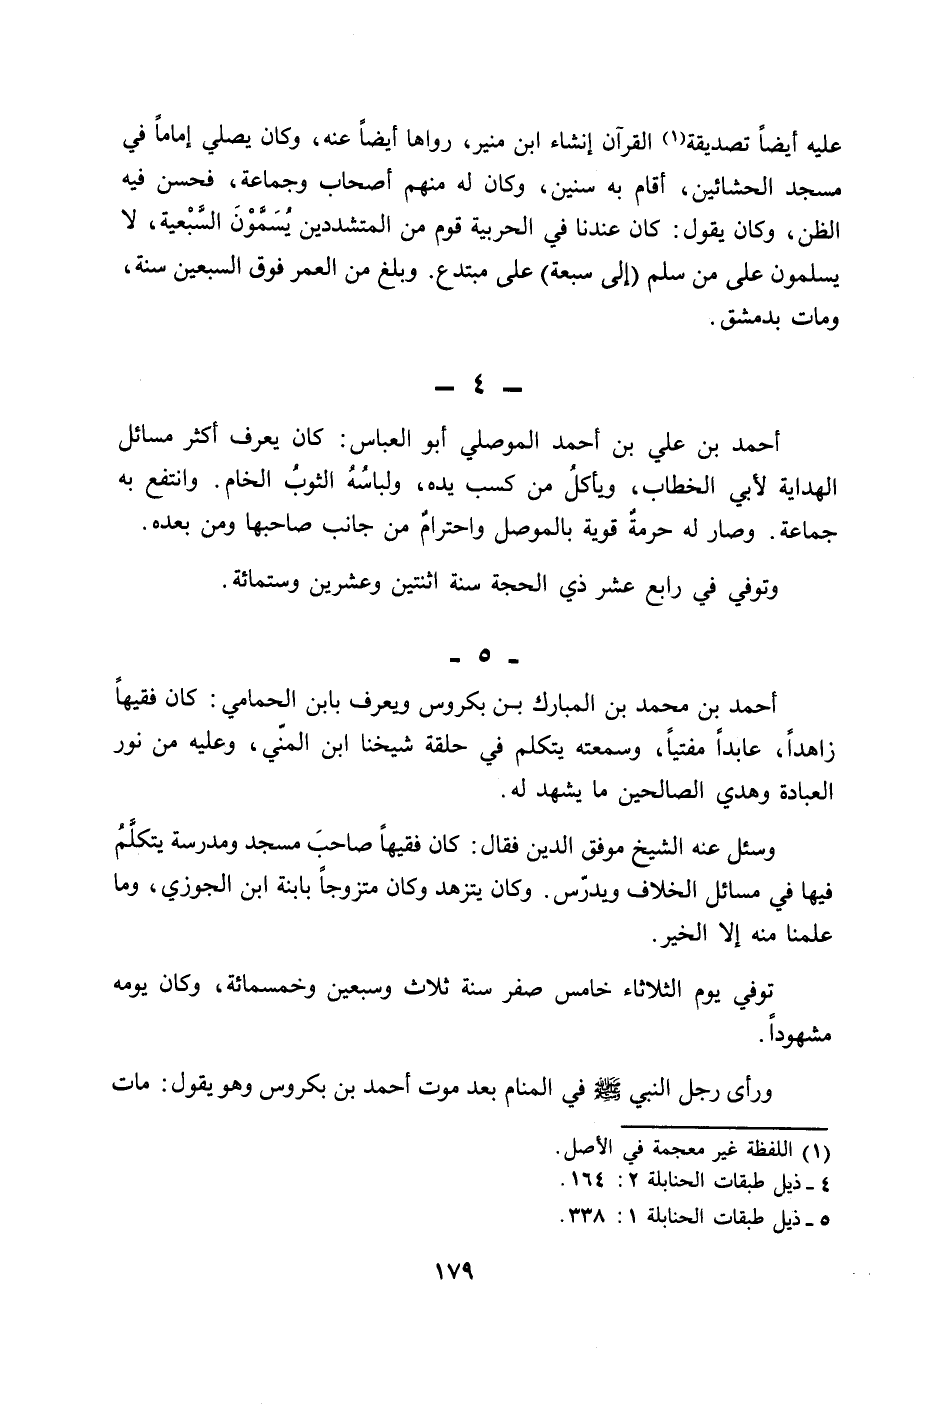 عليه أيضاً تصديقة(١) القرآن إنشاء ابن منير، رواها أيضاً عنه، وكان يصلي إماماً في
مسجد الحشائين، أقام به سنين، وكان له منهم أصحاب وجماعة، فحسن فيه
الظن، وكان يقول: كان عندنا في الحربية قوم من المتشددين يُسَمَّوْنَ السَّبْعية، لا
يسلمون على من سلم (إلى سبعة) على مبتدع. وبلغ من العمر فوق السبعين سنة،
ومات بدمشق.
– ٤ –
أحمد بن علي بن أحمد الموصلي أبو العباس: كان يعرف أكثر مسائل
الهداية لأبي الخطاب، ويأكلُ من كسب يده، ولباسُهُ الثوبُ الخام. وانتفع به
جماعة. وصار له حرمةٌ قوية بالموصل واحترامٌ من جانب صاحبها ومن بعده.
وتوفي في رابع عشر ذي الحجة سنة اثنتين وعشرين وستمائة.
- ٥ -
أحمد بن محمد بن المبارك بـن بكروس ويعرف بابن الحمامي: كان فقيهاً
زاهداً، عابداً مفتياً، وسمعته يتكلم في حلقة شيخنا ابن المنّي، وعليه من نور
العبادة وهدي الصالحين ما يشهد له.
وسئل عنه الشيخ موفق الدين فقال: كان فقيهاً صاحبَ مسجد ومدرسة يتكلَّمُ
فيها في مسائل الخلاف ويدرّس. وكان يتزهد وكان متزوجاً بابنة ابن الجوزي، وما
علمنا منه إلا الخير.
توفي يوم الثلاثاء خامس صفر سنة ثلاث وسبعين وخمسمائة، وكان يومه
مشهوداً.
ورأى رجل النبي ﷺ في المنام بعد موت أحمد بن بكروس وهو يقول: مات
(١) اللفظة غير معجمة في الأصل.
٤ - ذيل طبقات الحنابلة ٢: ١٦٤.
٥ - ذيل طبقات الحنابلة ١: ٣٣٨.
١٧٩